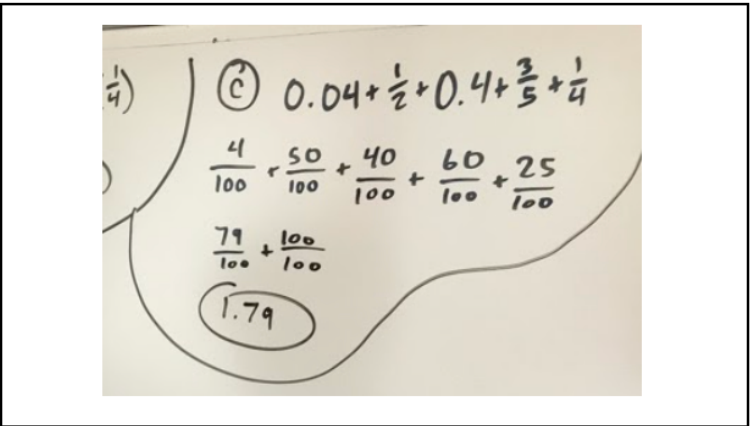 1/4)
Ⓒ 0.04 + 1/2 + 0.4 + 3/5 + 1/4
4/100 + 50/100 + 40/100 + 60/100 + 25/100
79/100 + 100/100
1.79